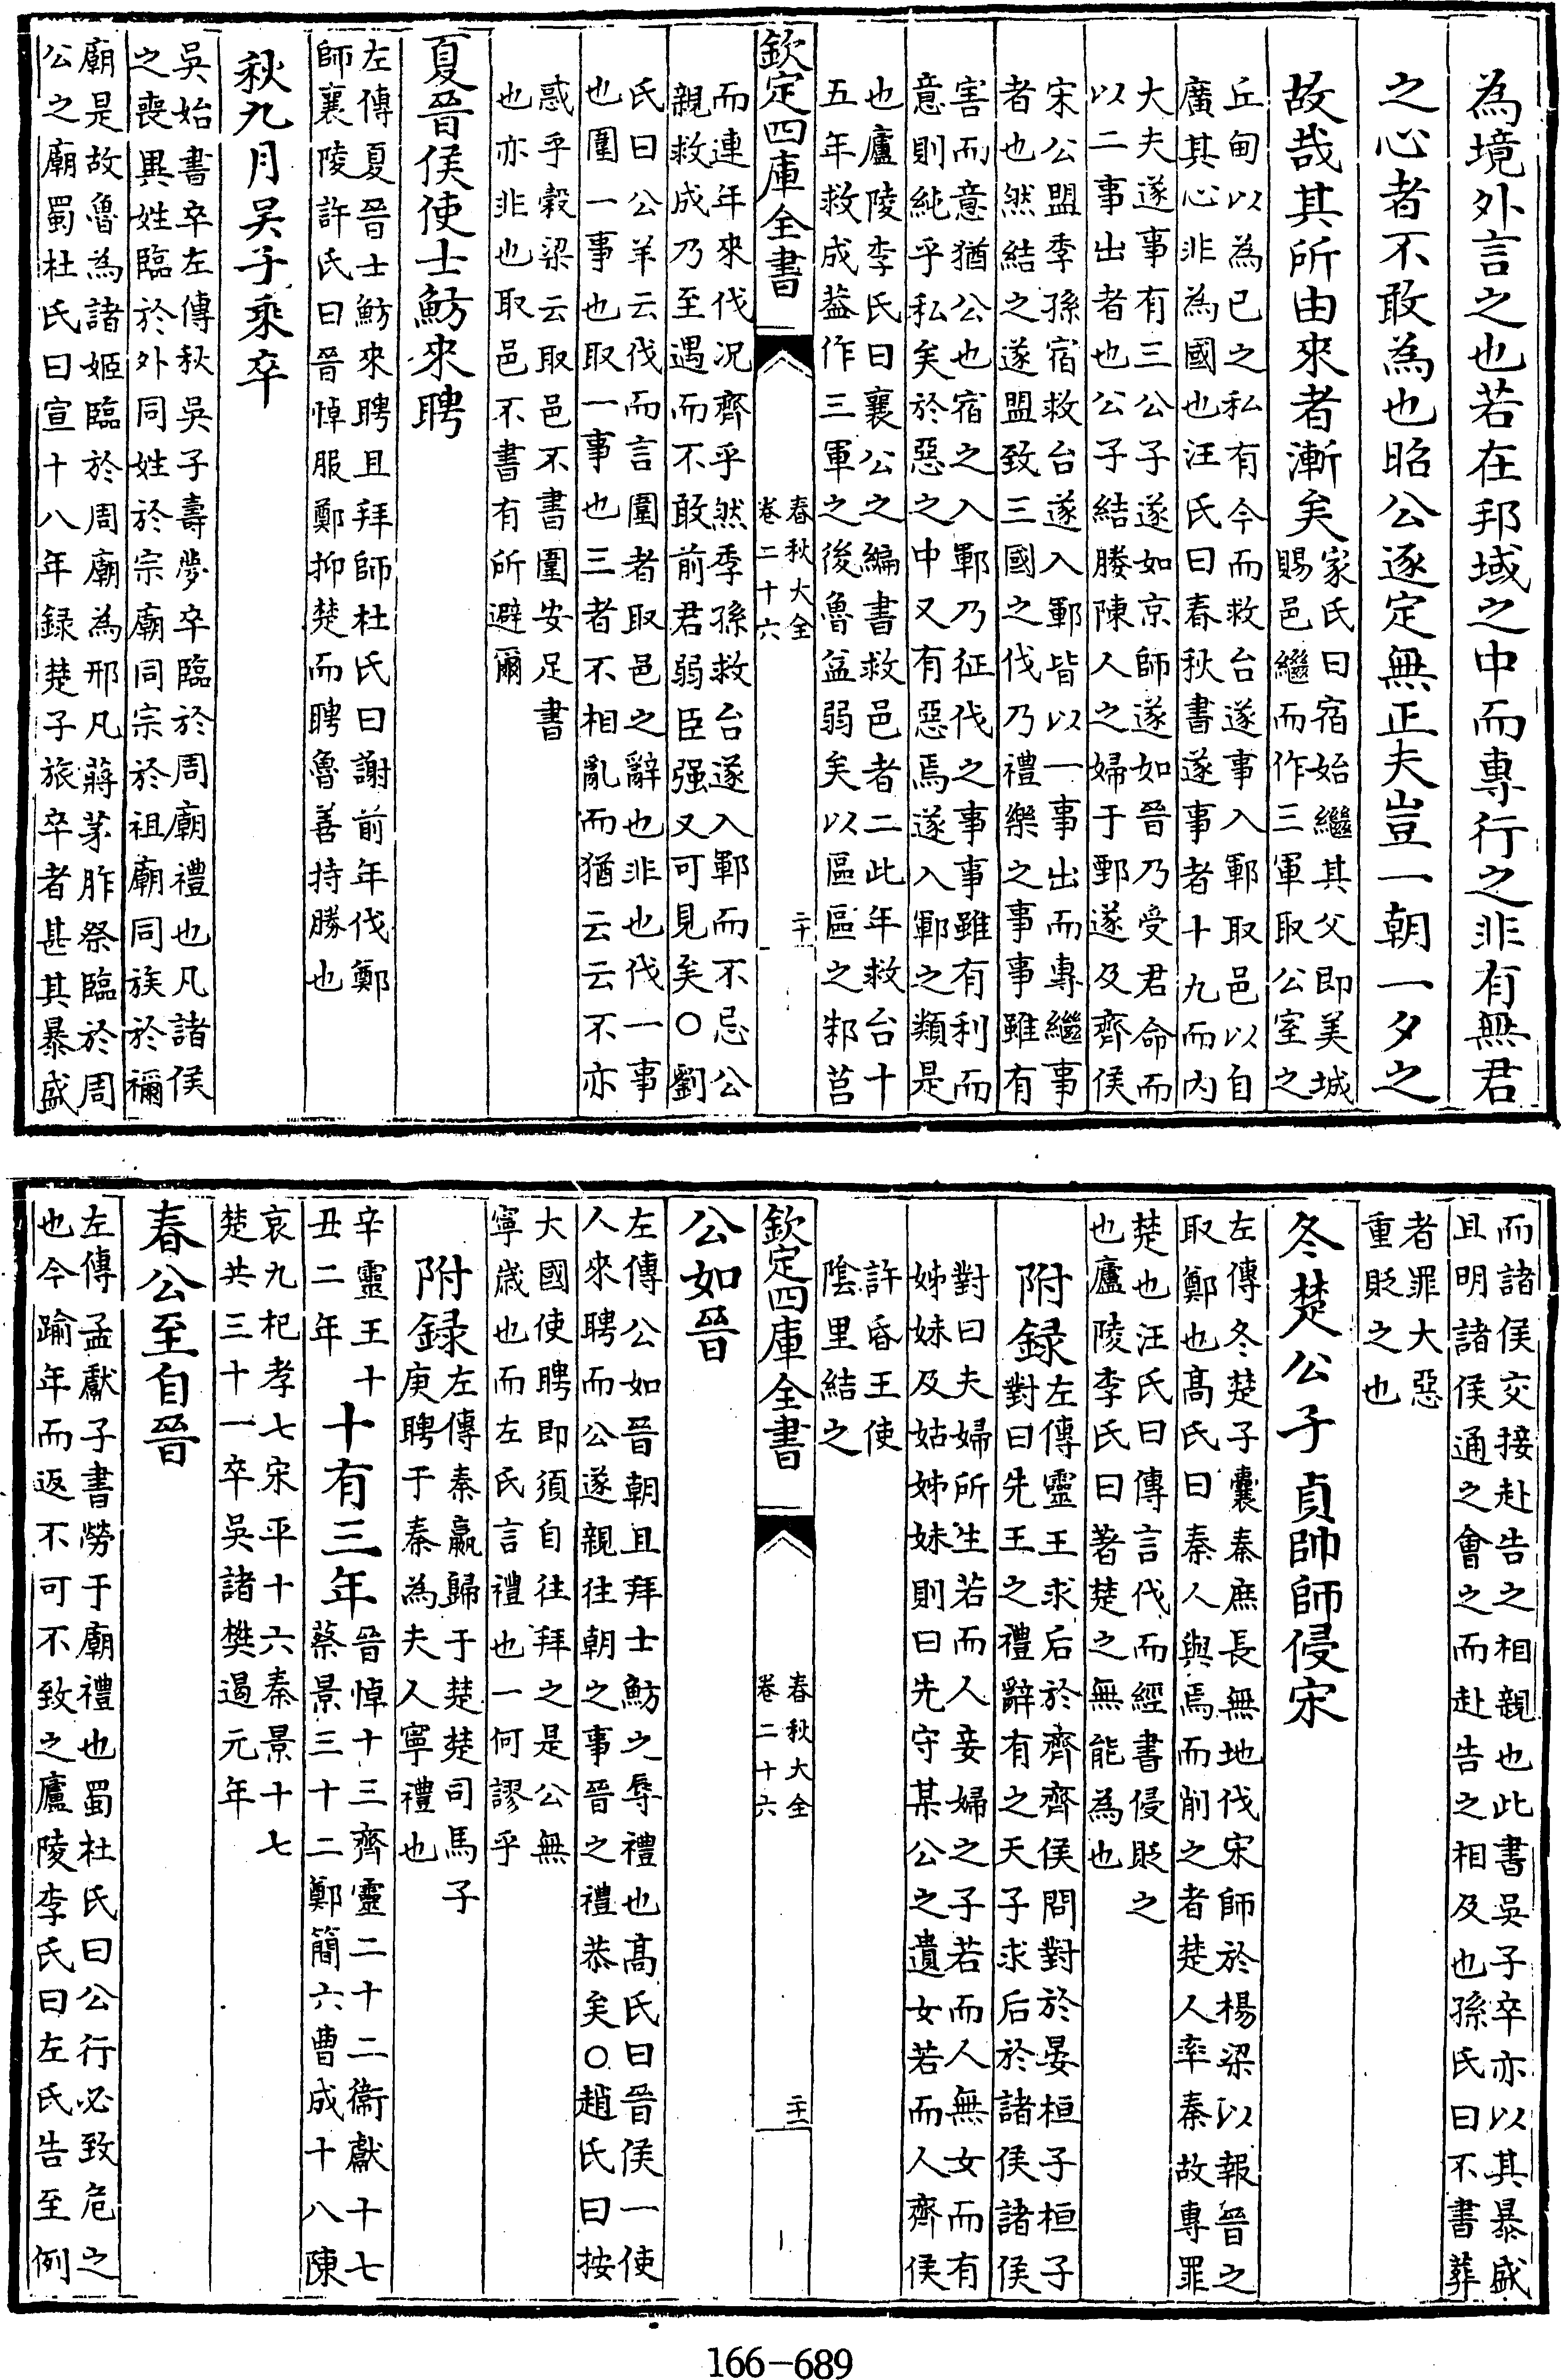 為境外言之也若在邦域之中而專行之非有無君
之心者不敢為也昭公逐定無正夫豈一朝一夕之
故哉其所由來者漸矣
家氏曰宿始繼其父即美城
賜邑繼而作三軍取公室之
丘甸以為已之私有今而救台遂事入鄆取邑以自
廣其心非為國也汪氏曰春秋書遂事者十九而内
大夫遂事有三公子遂如京師遂如晉乃受君命而
以二事出者也公子結媵陳人之婦于鄄遂及齊侯
宋公盟季孫宿救台遂入鄆皆以一事出而專繼事
者也然結之遂盟致三國之伐乃禮樂之事事雖有
害而意猶公也宿之入鄆乃征伐之事事雖有利而
意則純乎私矣於惡之中又有惡焉遂入鄆之類是
也廬陵李氏曰襄公之編書救邑者二此年救台十
五年救成葢作三軍之後魯益弱矣以區區之邾莒
欽定四庫全書
春秋大全
卷二十六
二十
而連年來伐况齊乎然季孫救台遂入鄆而不忌公
親救成乃至遇而不敢前君弱臣强又可見矣○劉
氏曰公羊云伐而言圍者取邑之辭也非也伐一事
也圍一事也取一事也三者不相亂而猶云云不亦
惑乎穀梁云取邑不書圍安足書
也亦非也取邑不書有所避爾
夏晉侯使士魴來聘
左傳夏晉士魴來聘且拜師杜氏曰謝前年伐鄭
師襄陵許氏曰晉悼服鄭抑楚而聘魯善持勝也
秋九月吴子乘卒
吳始書卒左傳秋吳子壽夢卒臨於周廟禮也凡諸侯
之喪異姓臨於外同姓於宗廟同宗於祖廟同族於禰
廟是故魯為諸姬臨於周廟為邢凡蔣茅胙祭臨於周
公之廟蜀杜氏曰宣十八年録楚子旅卒者甚其暴盛
而諸侯交接赴告之相親也此書吳子卒亦以其暴盛
且明諸侯通之會之而赴告之相及也孫氏曰不書葬
者罪大惡
重貶之也
冬楚公子貞帥師侵宋
左傳冬楚子囊秦庶長無地伐宋師於楊梁以報晉之
取鄭也髙氏曰秦人與焉而削之者楚人率秦故專罪
楚也汪氏曰傳言伐而經書侵貶之
也廬陵李氏曰著楚之無能為也
附録
左傳靈王求后於齊齊侯問對於晏桓子桓子
對曰先王之禮辭有之天子求后於諸侯諸侯
對曰夫婦所生若而人妾婦之子若而人無女而有
姊妹及姑姊妹則曰先守某公之遺女若而人齊侯
許昏王使
隂里結之
欽定四庫全書
春秋大全
卷二十六
二十一
公如晉
左傳公如晉朝且拜士魴之辱禮也髙氏曰晉侯一使
人來聘而公遂親往朝之事晉之禮恭矣○趙氏曰按
大國使聘即須自往拜之是公無
寧歳也而左氏言禮也一何謬乎
附録
左傳秦嬴歸于楚楚司馬子
庚聘于秦為夫人寧禮也
辛靈王十
丑二年
十有三年
晉悼十三齊靈二十二衞獻十七
蔡景三十二鄭簡六曹成十八陳
哀九杞孝七宋平十六秦景十七
楚共三十一卒吳諸樊遏元年
春公至自晉
左傳孟獻子書勞于廟禮也蜀杜氏曰公行必致危之
也今踰年而返不可不致之廬陵李氏曰左氏告至例
166-689